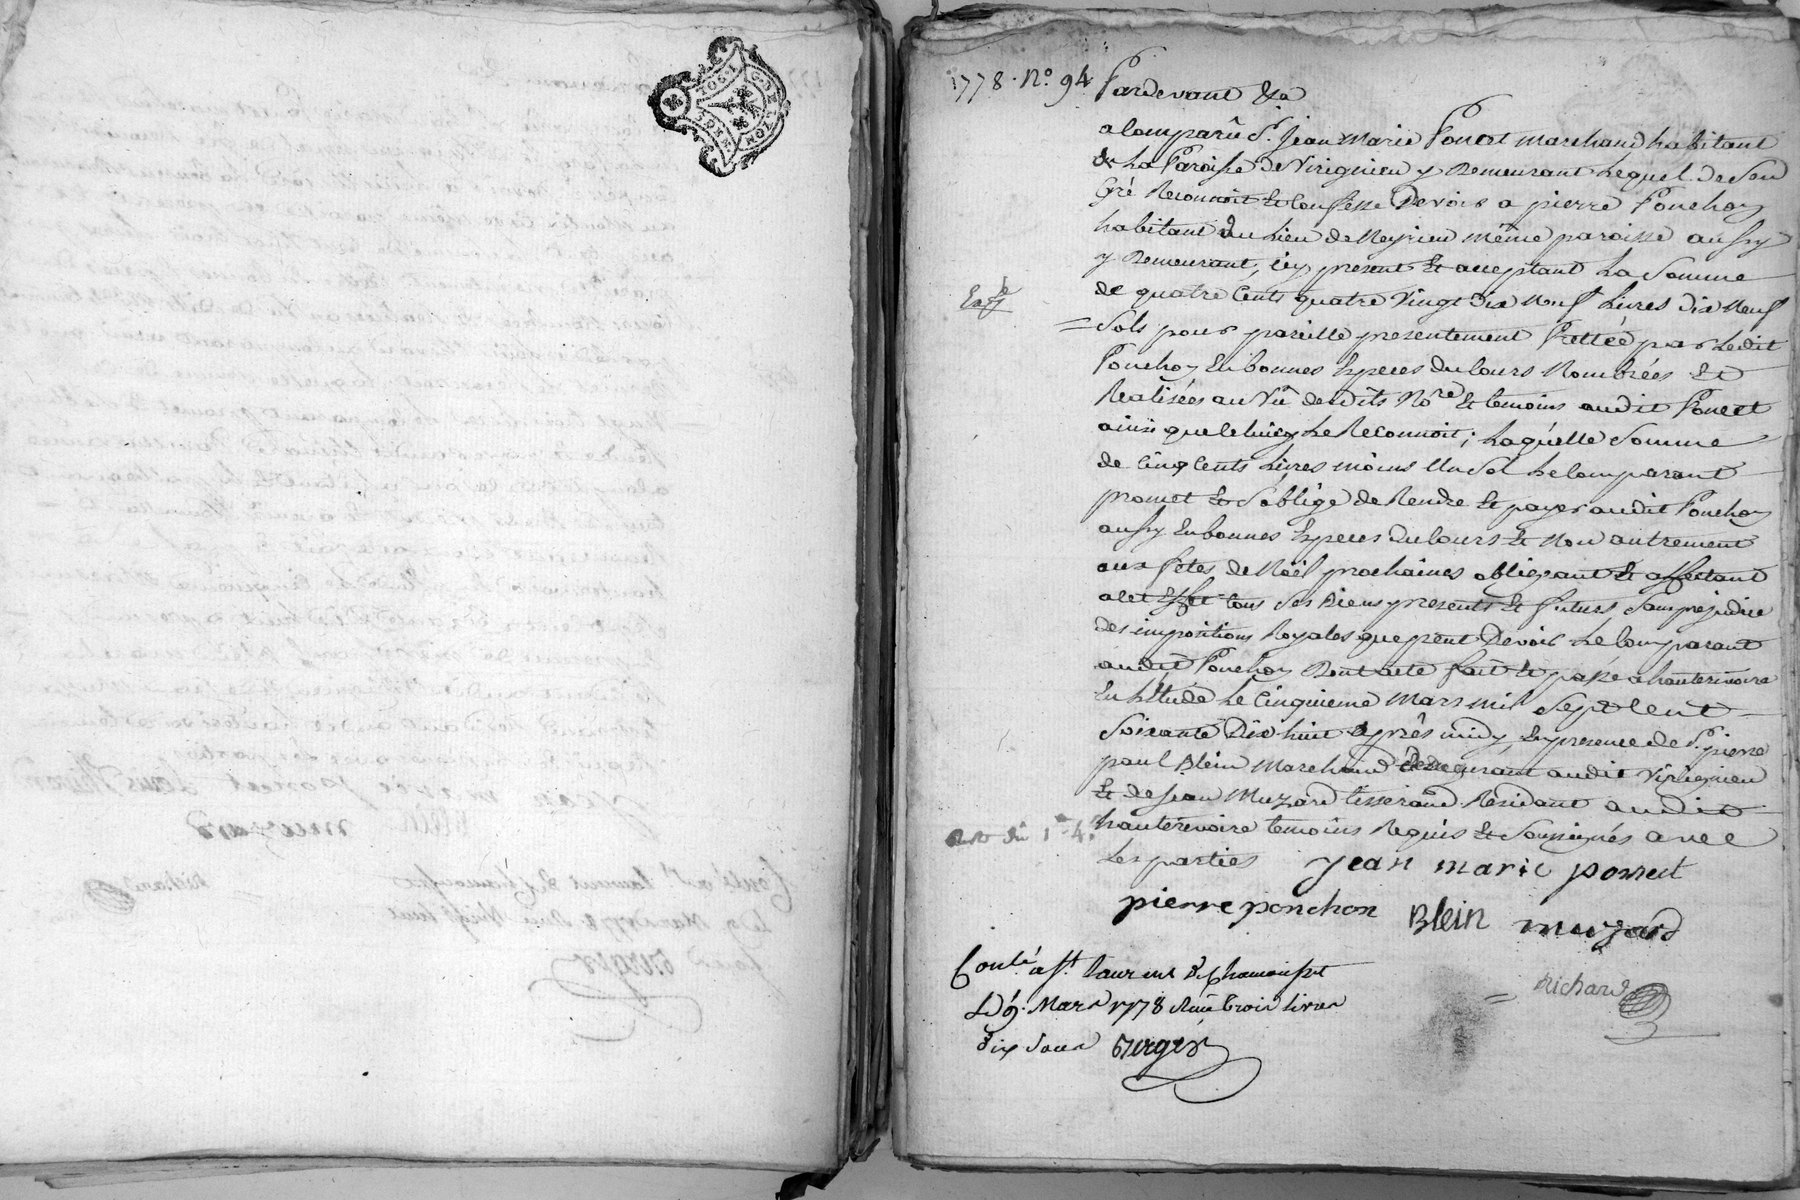 1778. N.o 94 Pardevant &a
a Comparû S.r Jean Marie Poncet marchand habitant
de La Paroisse de Virignieu y Demeurant Lequel de Son
Gré Reconnoit Et Confesse Devoir a pierre Ponchon
habitant du Lieu de Neyrieu même paroisse aussy
y Demeurant, icy present Et acceptant La Somme
de quatre Cents quatre Vingt Dix Neuf Livres Dix Neuf
Sols pour pareille presentement Prettée par Ledit
Ponchon En bonnes Especes du Cours Nombrées Et
Realisées au Vû desdits No.re Et temoins audit Poncet
ainsi que le Reconnoit; Laquelle Somme
de Cinq Cents Livres moins Un Sol Le Comparant
promet Et S'oblige de Rendre Et payer audit Ponchon
aussy En bonnes Especes du Cours Et Non autrement
aux fêtes de Noël prochaines obligeant Et affectant
a cet Effet tous Ses Biens presents Et futurs Sans prejudice
des impositions Royales que peut Devoir Le Comparant
audit Ponchon Dont acte fait Et passé a hauterivoire
En L'Etude Le Cinquieme Mars mil Sept Cent
Soixante Dix huit après midy, En presence de S.r pierre
paul Blein Marchand demeurant audit Virignieu
Et de Jean Muzard tisserand Residant audit
hauterivoire temoins Requis Et Soussignés avec
Les parties Jean marie poncet
pierre ponchon Blein muzard
Richard
Conlé a St. Laurent de Chamousset
Le 9. Mars 1778 Reçu trois livres
dix sous